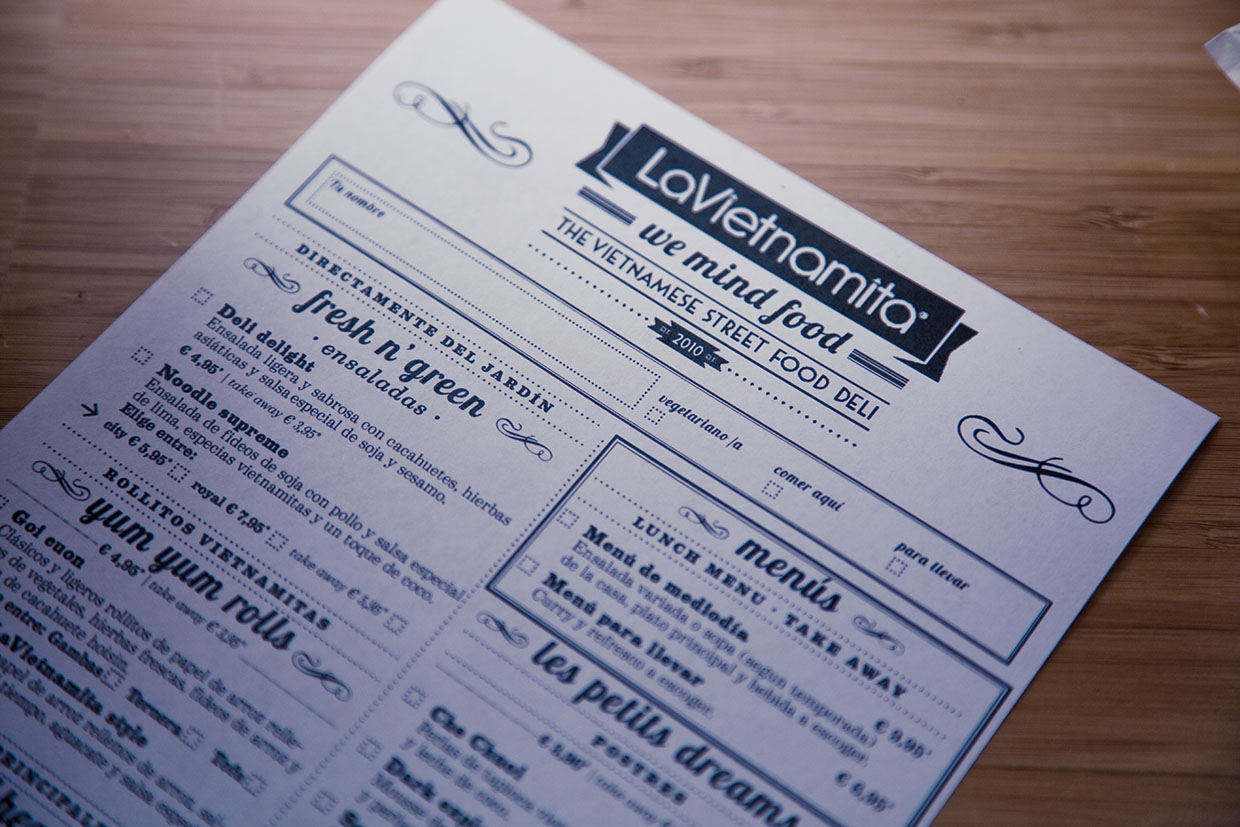 LaVietnamita
we mind food
THE VIETNAMESE STREET FOOD DELI
DE 2010 DE
Tu nombre
vegetariano/a
comer aquí
para llevar
DIRECTAMENTE DEL JARDÍN
fresh n' green
· ensaladas ·
Deli delight
Ensalada ligera y sabrosa con cacahuetes, hierbas
asiáticas y salsa especial de soja y sesamo.
€ 4,95* | take away € 3,95*
Noodle supreme
Ensalada de fideos de soja con pollo y salsa especial
de lima, especias vietnamitas y un toque de coco.
Elige entre:
city € 5,95* royal € 7,95* take away € 5,95*
ROLLITOS VIETNAMITAS
yum yum rolls
€ 4,95* | take away € 3,95*
Goi cuon
Clásicos y ligeros rollitos de papel de arroz relle-
de vegetales, hierbas frescas, fideos de arroz y
de cacahuete hoisin.
entre: Gambas Ternera Tofu
LaVietnamita style
papel de arroz rellenos de arroz
aguacate y salsa
menús
LUNCH MENU · TAKE AWAY
Menú de mediodía
Ensalada variada o sopa (segun temporada)
de la casa, plato principal y bebida a escoger.
€ 9,95*
Menú para llevar
Curry y refresco a escoger.
€ 6,95*
les petits dreams
POSTRES
Che Chuoi
Perlas de tapioca
y leche de coco.
Dark
Mousse